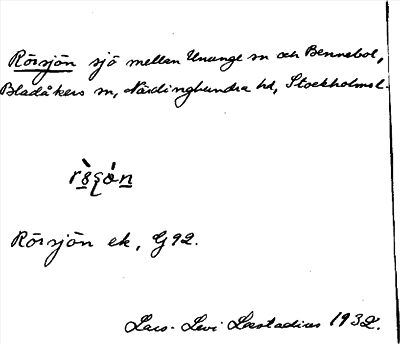 Rörsjön sjö mellan Ununge sn och Bennebol,
Bladåkers sn, Närdinghundra hd, Stockholms l.
Rörsjön ek, G92.
Lars-Levi Læstadius 1932.